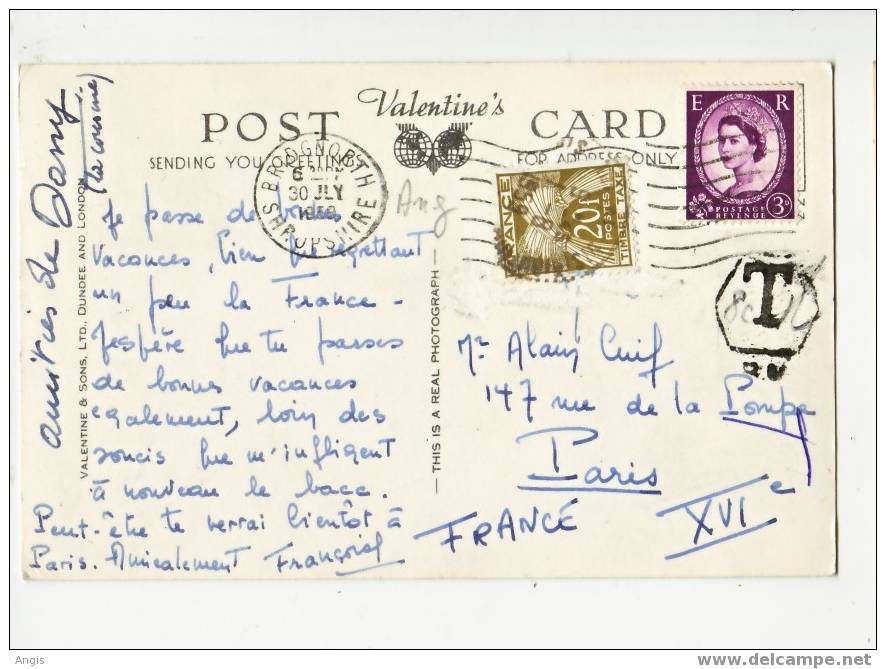 POST Valentine's CARD
SENDING YOU GREETINGS FOR ADDRESS ONLY
BRIDGNORTH
30 JLY
SHROPSHIRE
Ang
FRANCE
20F
POSTES
TIMBRE TAXE
E R
3D
POSTAGE
REVENUE
T
Je passe de bonnes
vacances, bien que regrettant
un peu la France -
J'espère que tu passes
de bonnes vacances
également, loin des
soucis que m'infligent
à nouveau le bacc.
Peut-être te verrai bientôt à
Paris. Amicalement Françoise
amitiés de Dany
(la cousine)
VALENTINE & SONS, LTD. DUNDEE AND LONDON
— THIS IS A REAL PHOTOGRAPH —
Mr Alain Cuif
147 rue de la Pompe
Paris
XVIe
FRANCE
Angis
delcampe.net